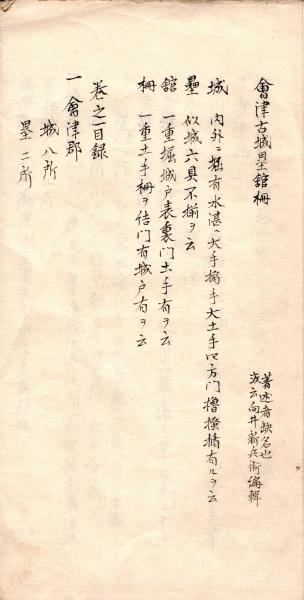 會津古城壘舘柵
著述者缺名也
或云向井新兵衛編輯
城 内外ニ堀有水湛ヘ大手搦手大土手四方門櫓 有ルヲ云
壘 似城六具不揃ヲ云
舘 一重堀城戸表裏門土手有ヲ云
柵 一重土手柵ヲ 門有城戸有ヲ云
巻之一目録
一 會津郡
城八ヶ所
壘二ヶ所